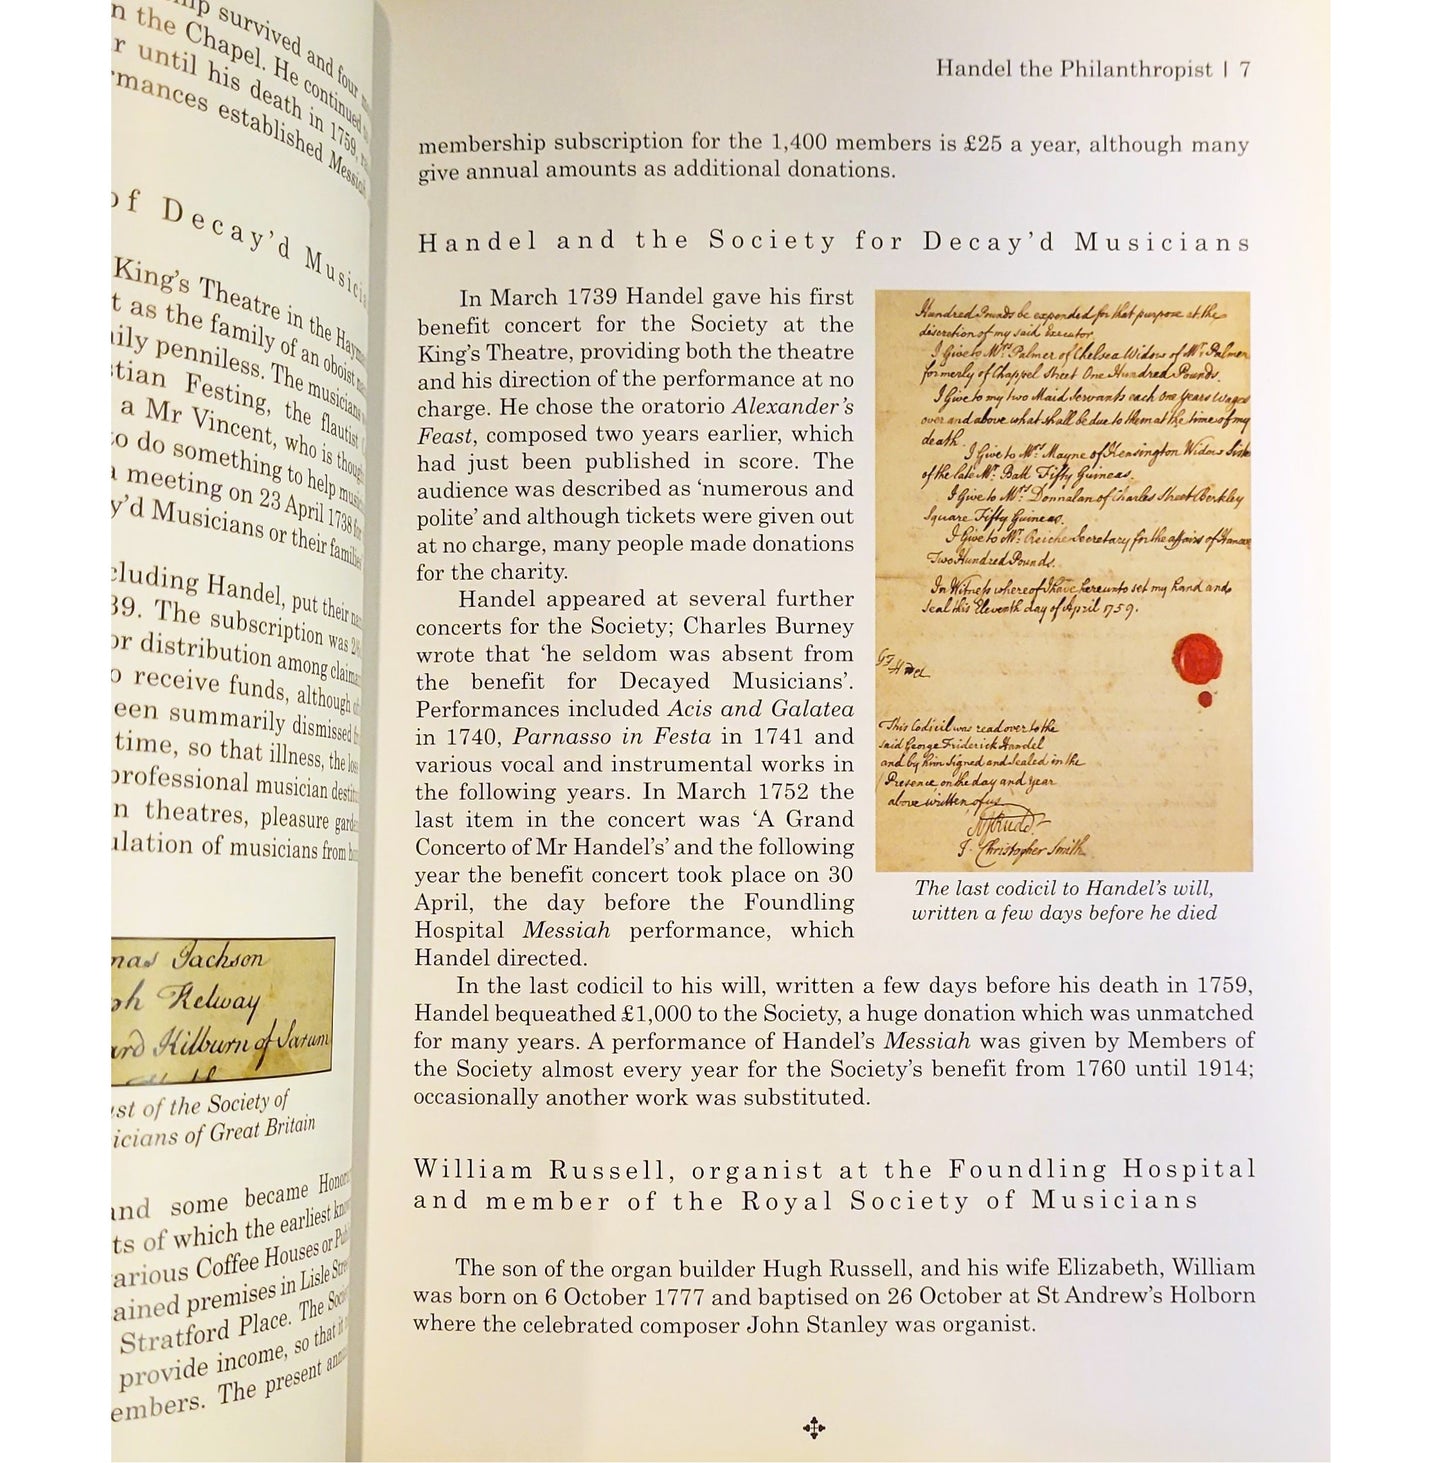 survived and four
n the Chapel. He continued
r until his death in 1759,
rmances established Messiah
of Decay'd
King's Theatre in the
t as the family of an oboist
ily penniless. The musicians
Festing, the flautist
a Mr Vincent, who is
to do something to help
a meeting on 23 April 1738 for
y'd Musicians or their families
cluding Handel, put their
39. The subscription was
or distribution among
o receive funds, although
een summarily dismissed
time, so that illness, the
professional musician
n theatres, pleasure
ulation of musicians from
mas Jackson
ph Kelway
ard Kilburn of Sarum
st of the Society of
icians of Great Britain
and some became
ts of which the earliest
arious Coffee Houses or
ained premises in Lisle
Stratford Place. The
provide income, so that
embers. The present
Handel the Philanthropist | 7
membership subscription for the 1,400 members is £25 a year, although many
give annual amounts as additional donations.
Handel and the Society for Decay'd Musicians
In March 1739 Handel gave his first
benefit concert for the Society at the
King's Theatre, providing both the theatre
and his direction of the performance at no
charge. He chose the oratorio Alexander's
Feast, composed two years earlier, which
had just been published in score. The
audience was described as 'numerous and
polite' and although tickets were given out
at no charge, many people made donations
for the charity.
Handel appeared at several further
concerts for the Society; Charles Burney
wrote that 'he seldom was absent from
the benefit for Decayed Musicians'.
Performances included Acis and Galatea
in 1740, Parnasso in Festa in 1741 and
various vocal and instrumental works in
the following years. In March 1752 the
last item in the concert was 'A Grand
Concerto of Mr Handel's' and the following
year the benefit concert took place on 30
April, the day before the Foundling
Hospital Messiah performance, which
Handel directed.
Hundred Pounds be expended for that purpose at the
discretion of my said Executor.
I Give to Mrs. Palmer of Chelsea Widow of Mr. Palmer
formerly of Chappel Street One Hundred Pounds.
I Give to my two Maid Servants each one Years Wages
over and above what shall be due to them at the time of my
death.
I Give to Mrs. Mayne of Kensington Widow Sister
of the late Mr. Batt Fifty Guineas.
I Give to Mrs. Donnalan of Charles Street Berkley
Square Fifty Guineas.
I Give to Mr. Reiche Secretary for the affairs of Hanover
Two Hundred Pounds.
In Witness whereof I have hereunto set my hand and
Seal this Eleventh day of April 1759.
This Codicil was read over to the
said George Friderick Handel
and by him Signed and Sealed in the
Presence, on the day and Year
above written of us
J. Christopher Smith
The last codicil to Handel's will,
written a few days before he died
In the last codicil to his will, written a few days before his death in 1759,
Handel bequeathed £1,000 to the Society, a huge donation which was unmatched
for many years. A performance of Handel's Messiah was given by Members of
the Society almost every year for the Society's benefit from 1760 until 1914;
occasionally another work was substituted.
William Russell, organist at the Foundling Hospital
and member of the Royal Society of Musicians
The son of the organ builder Hugh Russell, and his wife Elizabeth, William
was born on 6 October 1777 and baptised on 26 October at St Andrew's Holborn
where the celebrated composer John Stanley was organist.